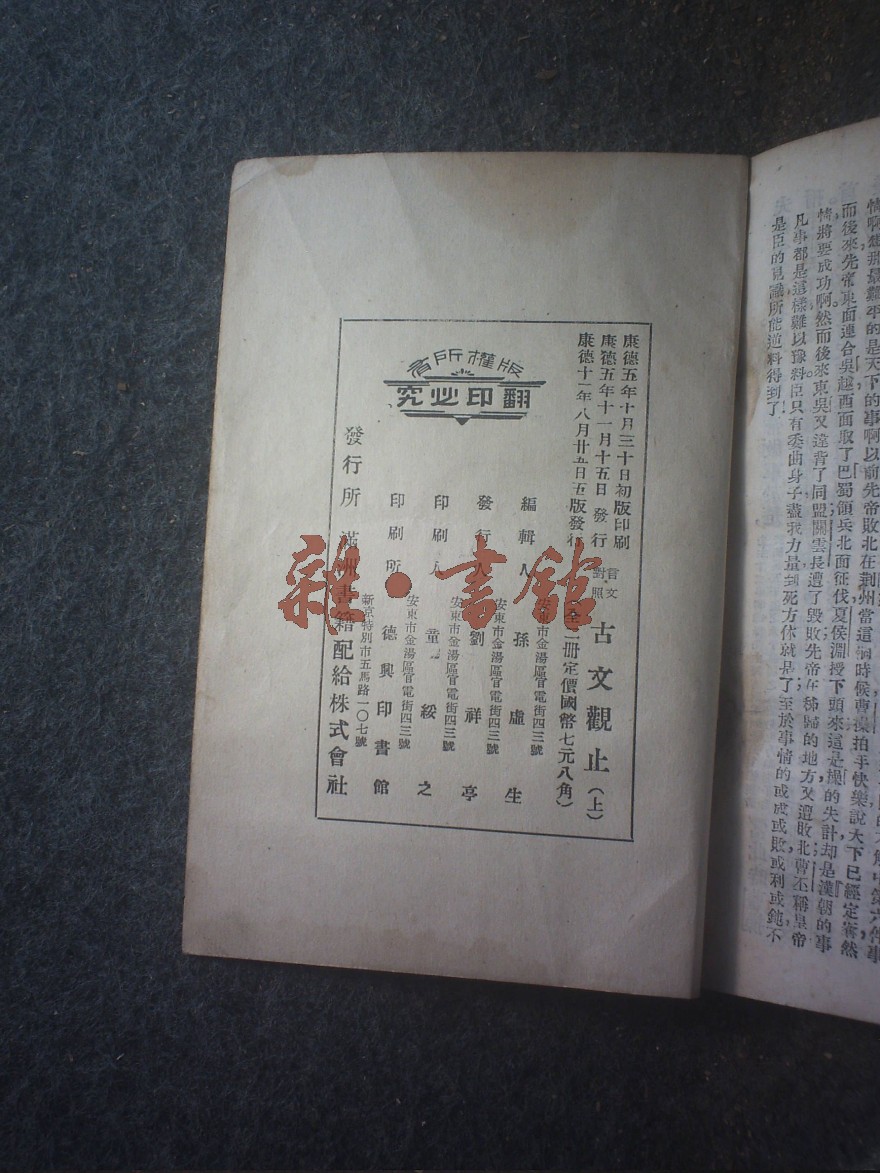 康德五年十月三十日初版印刷
康德五年十一月十五日發行
康德十一年八月廿五日五版發行
言文對照
古文觀止(上)
(全二冊定價國幣七元八角)
安東市金湯區官電街四三號
編輯人 孫虛生
安東市金湯區官電街四三號
發行人 劉祥亭
安東市金湯區官電街四三號
印刷人 董綏之
新京特別市五馬路一〇七號
印刷所 德興印書館
發行所 滿洲書籍配給株式會社
版權所有
翻印必究
雜·書館
而後來先帝東面連合吳越西面取了巴蜀領兵北面征伐夏侯淵授下頭來這是操的失計却是漢朝的事
情將要成功啊然而後來東吳又違背了同盟關雲長遭了毀敗先帝在秭歸的地方又遭敗北曹丕稱皇帝
凡事都是這樣難以豫料臣只有委曲身子盡我力量到死方休就是了至於事情的或成或敗或利或鈍不
是臣的見識所能逆料得到了